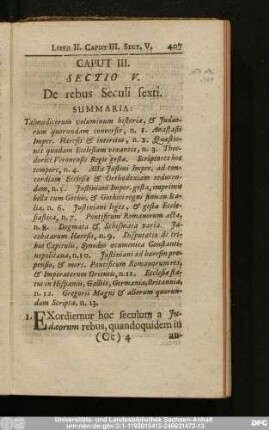 LIBER II. CAPUT III. SECT. V. 407
CAPUT III.
SECTIO V.
De rebus Seculi sexti.
SUMMARIA:
Talmudicorum voluminum historia, & Judæ-
orum quorundam conversio, n. 1. Anastasii
Imper. Hæresis & interitus, n. 2. Quæstio-
nes quædam Ecclesiam vexantes, n. 3. Theo-
dorici Veronensis Regis gesta. Scriptores hoc
tempore, n. 4. Acta Justini Imper. ad con-
cordiam Ecclesiæ & Orthodoxiam reducen-
dam, n. 5. Justiniani Imper. gesta, inprimis
bella cum Gothis, & Gothici regni finis in Ita-
lia, n. 6. Justiniani leges, & gesta Eccle-
siastica, n. 7. Pontificum Romanorum acta,
n. 8. Dogmata & Schismata varia. Ja-
cobitarum Hæresis, n. 9. Disputatio de tri-
bus Capitulis, Synodus œcumenica Constanti-
nopolitana, n. 10. Justiniani ad hæresin pro-
pensio, & mors. Pontificum Romanorum res,
& Imperatorum Orientis, n. 11. Ecclesiæ sta-
tus in Hispaniis, Galliis, Germania, Britannia,
n. 12. Gregorii Magni & aliorum quorun-
dam Scripta, n. 13.
1. EXordiemur hoc seculum a Ju-
dæorum rebus, quandoquidem in
(Cc) 4 au-
Universitäts- und Landesbibliothek Sachsen-Anhalt
urn:nbn:de:gbv:3:1-1192015415-246621472-13
DFG